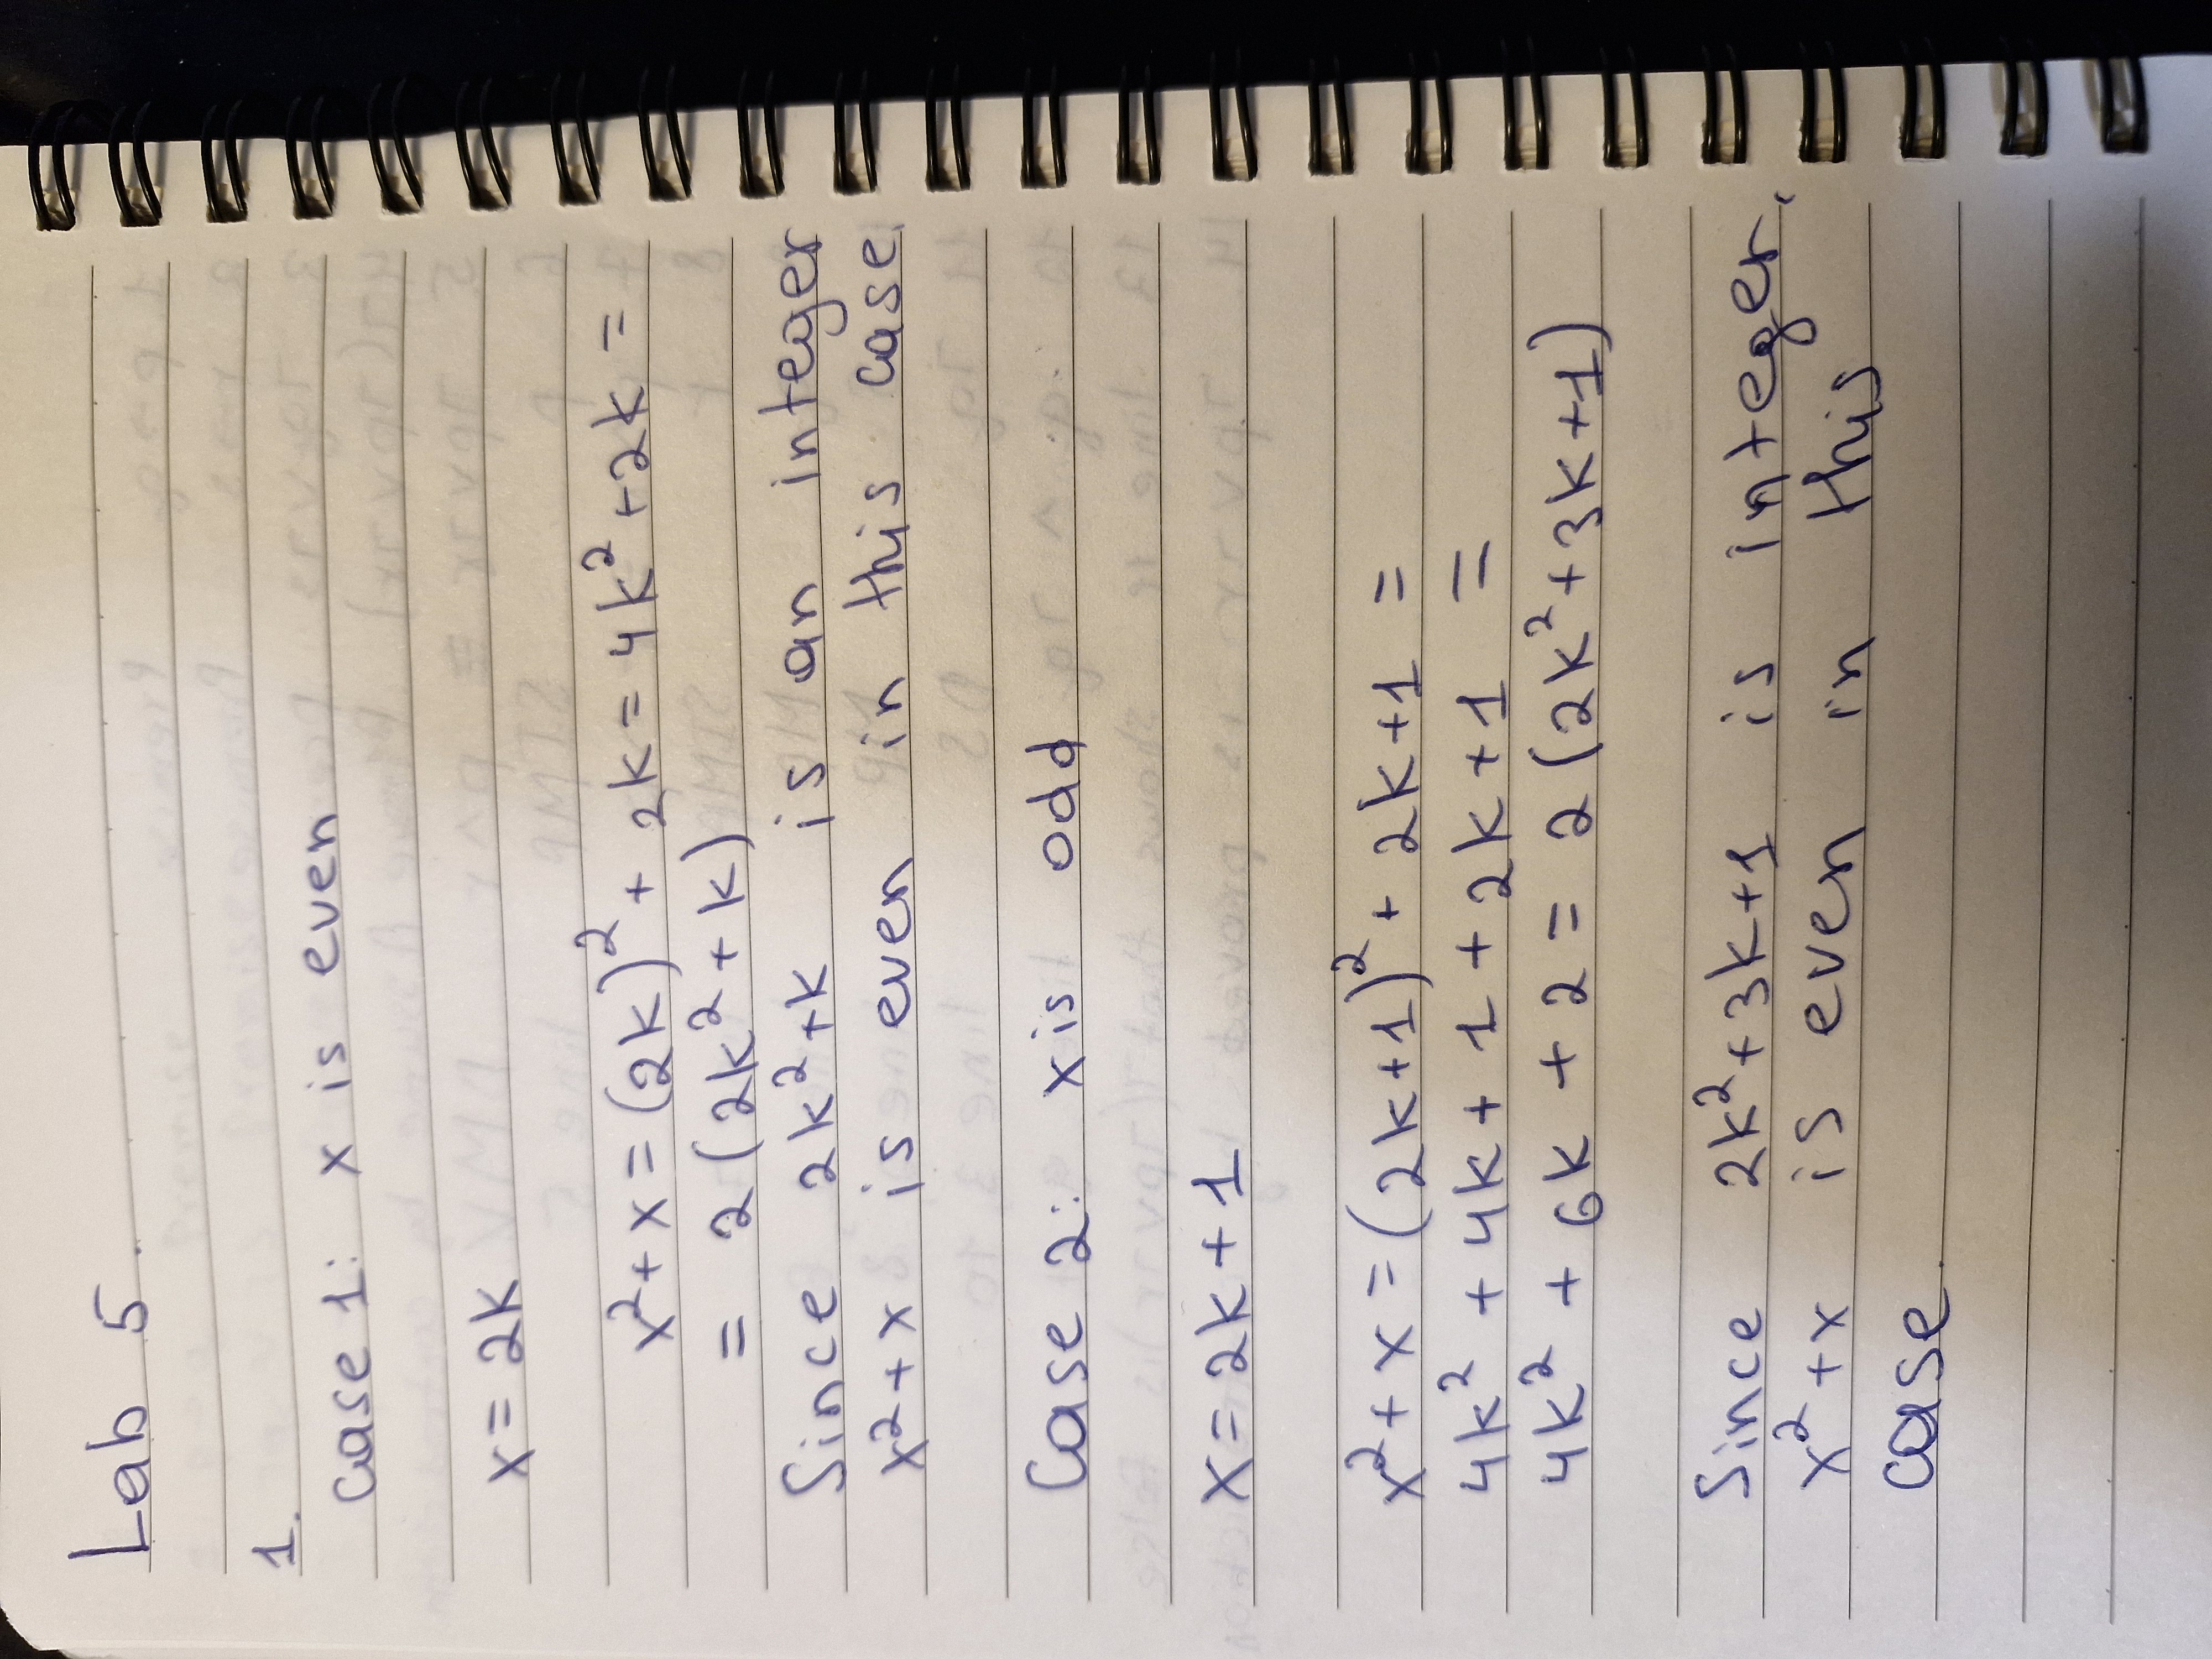 Lab 5.
1.
Case 1: x is even
x = 2k
x² + x = (2k)² + 2k = 4k² + 2k =
= 2 (2k² + k)
Since 2k² + k is an integer
x² + x is even in this case.
Case 2: x is odd
x = 2k + 1
x² + x = (2k+1)² + 2k + 1 =
4k² + 4k + 1 + 2k + 1 =
4k² + 6k + 2 = 2 (2k² + 3k + 1)
Since 2k² + 3k + 1 is integer,
x² + x is even in this
case.